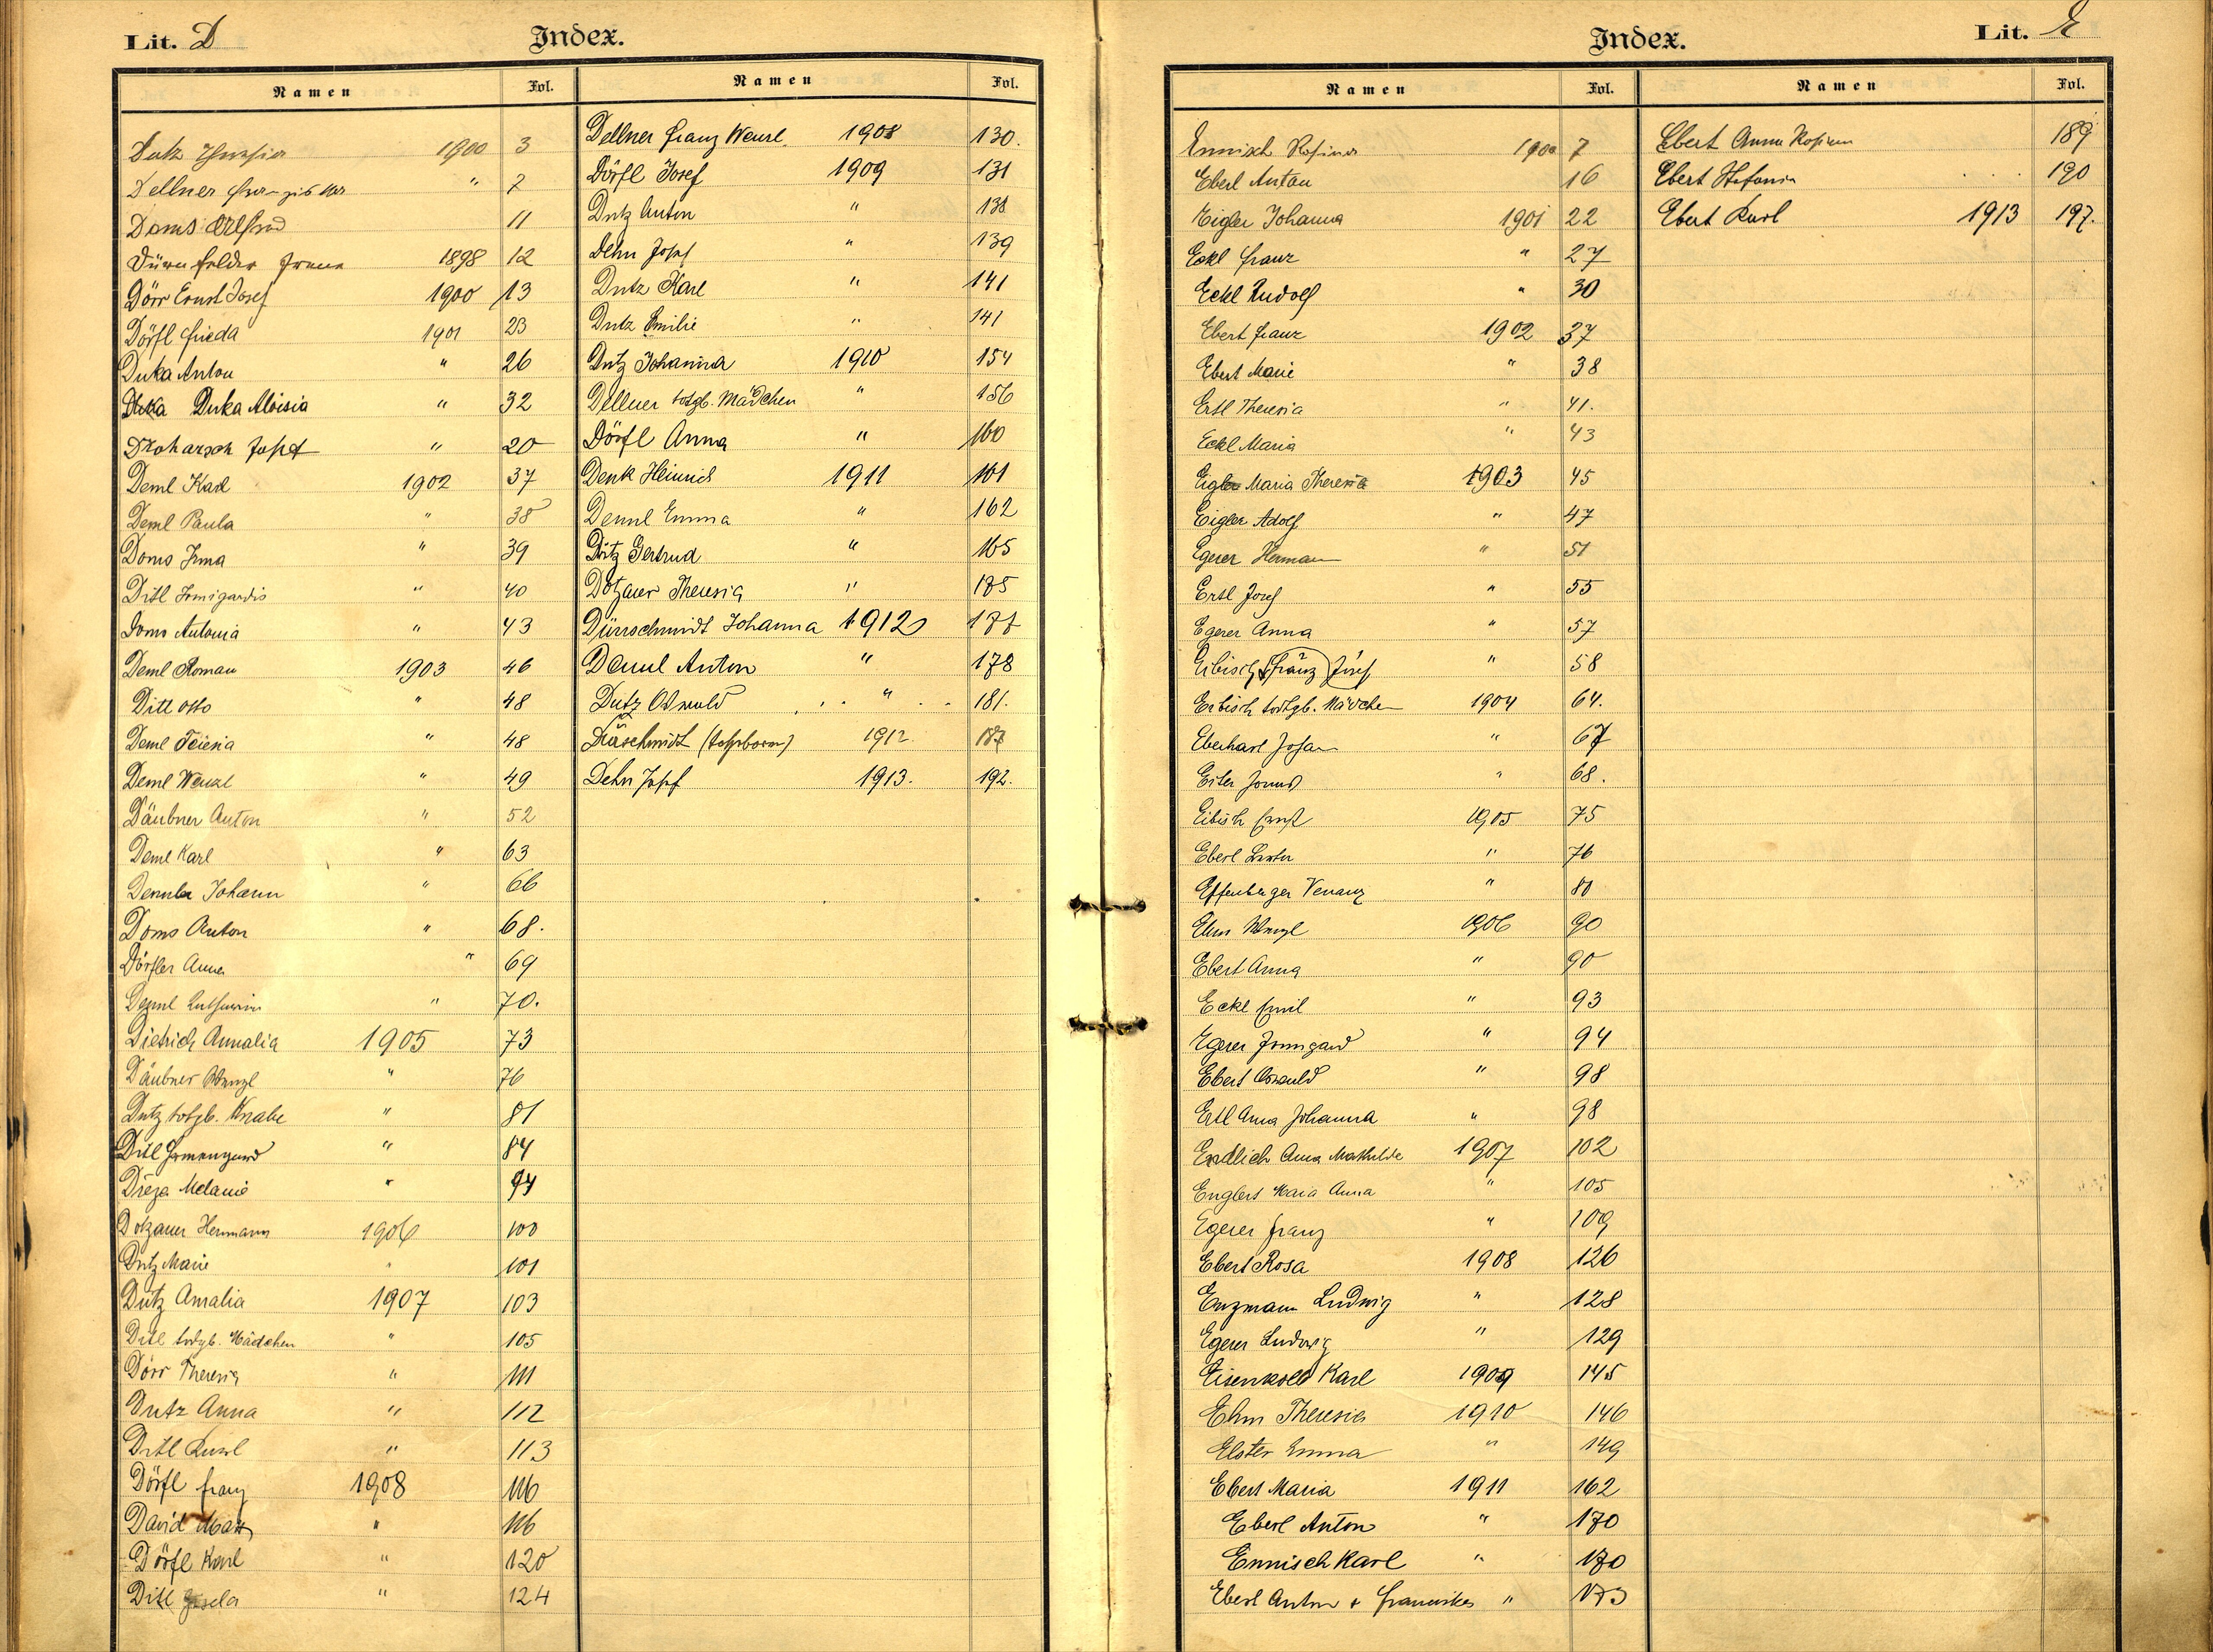 Lit. D
Index.
Namen Fol. Namen Fol.
Dutz 1900 3
Dellner " 7
Doms Alfred 11
1898 12
Dörr Ernst Josef 1900 13
Dörfl Frieda 1901 23
Duka Anton " 26
Duka Duka Aloisia " 32
Josef " 20
Deml Karl 1902 37
Deml Paula " 38
Doms Irma " 39
Ditl Irmigardis " 40
Doms Antonia " 43
Deml Roman 1903 46
Ditl Otto " 48
Deml " 48
Deml Wenzl " 49
Däubner Anton " 52
Deml Karl " 63
Johann " 66
Doms Anton " 68.
Dörfler Anna " 69
Deml " 70.
Dietrich Annalia 1905 73
Däubner Wenzl " 76
Dutz totgb. Knabe " 81
Ditl " 84
Melanie " 94
Dotzauer Hermann 1906 100
Dutz Marie " 101
Dutz Amalia 1907 103
Ditl todgb. Mädchen " 105
Dörr Theresia " 111
Dutz Anna " 112
Ditl Karl " 113
Dörfl Franz 1908 116
David Max " 116
Dörfl Karl " 120
Ditl Gisela " 124
Dellner Franz Wenzl. 1908 130.
Dörfl Josef 1909 131
Dutz Anton " 138
Dehn Josef " 139
Dutz Karl " 141
Dutz Emilie " 141
Dutz Johanna 1910 154
Dellner totgb. Mädchen " 156
Dörfl Anna " 160
Denk Heinrich 1911 161
Deml Emma " 162
Dutz Gertrud " 165
Dotzauer Theresia " 175
Dürrschmidt Johanna 1912 177
Deml Anton " 178
Dutz Oswald " 181.
1912 187
Dehn Josef 1913. 192.
Lit. E
Index.
Namen Fol. Namen Fol.
Ennisch Rosina 1900 7
Eberl Anton 16
Eigler Johanna 1901 22
Eckl Franz " 27
Eckl Rudolf " 30
Ebert Franz 1902 37
Ebert Marie " 38
Ertl Theresia " 41.
Eckl Maria " 43
Eigler Maria Theresia 1903 45
Eigler Adolf " 47
Egerer Herman " 51
Ertl Josef " 55
Egerer Anna " 57
Eibisch (Franz) Josef " 58
Eibisch todtgb. Mädchen 1904 64.
Eberhart Johann " 67
" 68.
Eibisch Ernst 1905 75
Eberl " 76
Effenberger Venanz " 80
Ehm Wenzl 1906 90
Ebert Anna " 90
Eckl Emil " 93
Egerer Irmgard " 94
Ebert Oswald " 98
Ertl Anna Johanna " 98
Endlich Anna Mathilde 1907 102
Englert Maria Anna " 105
Egerer Franz " 109
Ebert Rosa 1908 126
Enzmann Ludwig " 128
Egerer Ludwig " 129
Eisenkolb Karl 1909 145
Ehm Theresia 1910 146
Elster Emma " 149
Ebert Maria 1911 162
Eberl Anton " 170
Ennisch Karl " 170
Eberl Anton + Franziska " 173
Ebert Anna Rosina 189
Ebert Stefanie 190
Ebert Karl 1913 197.